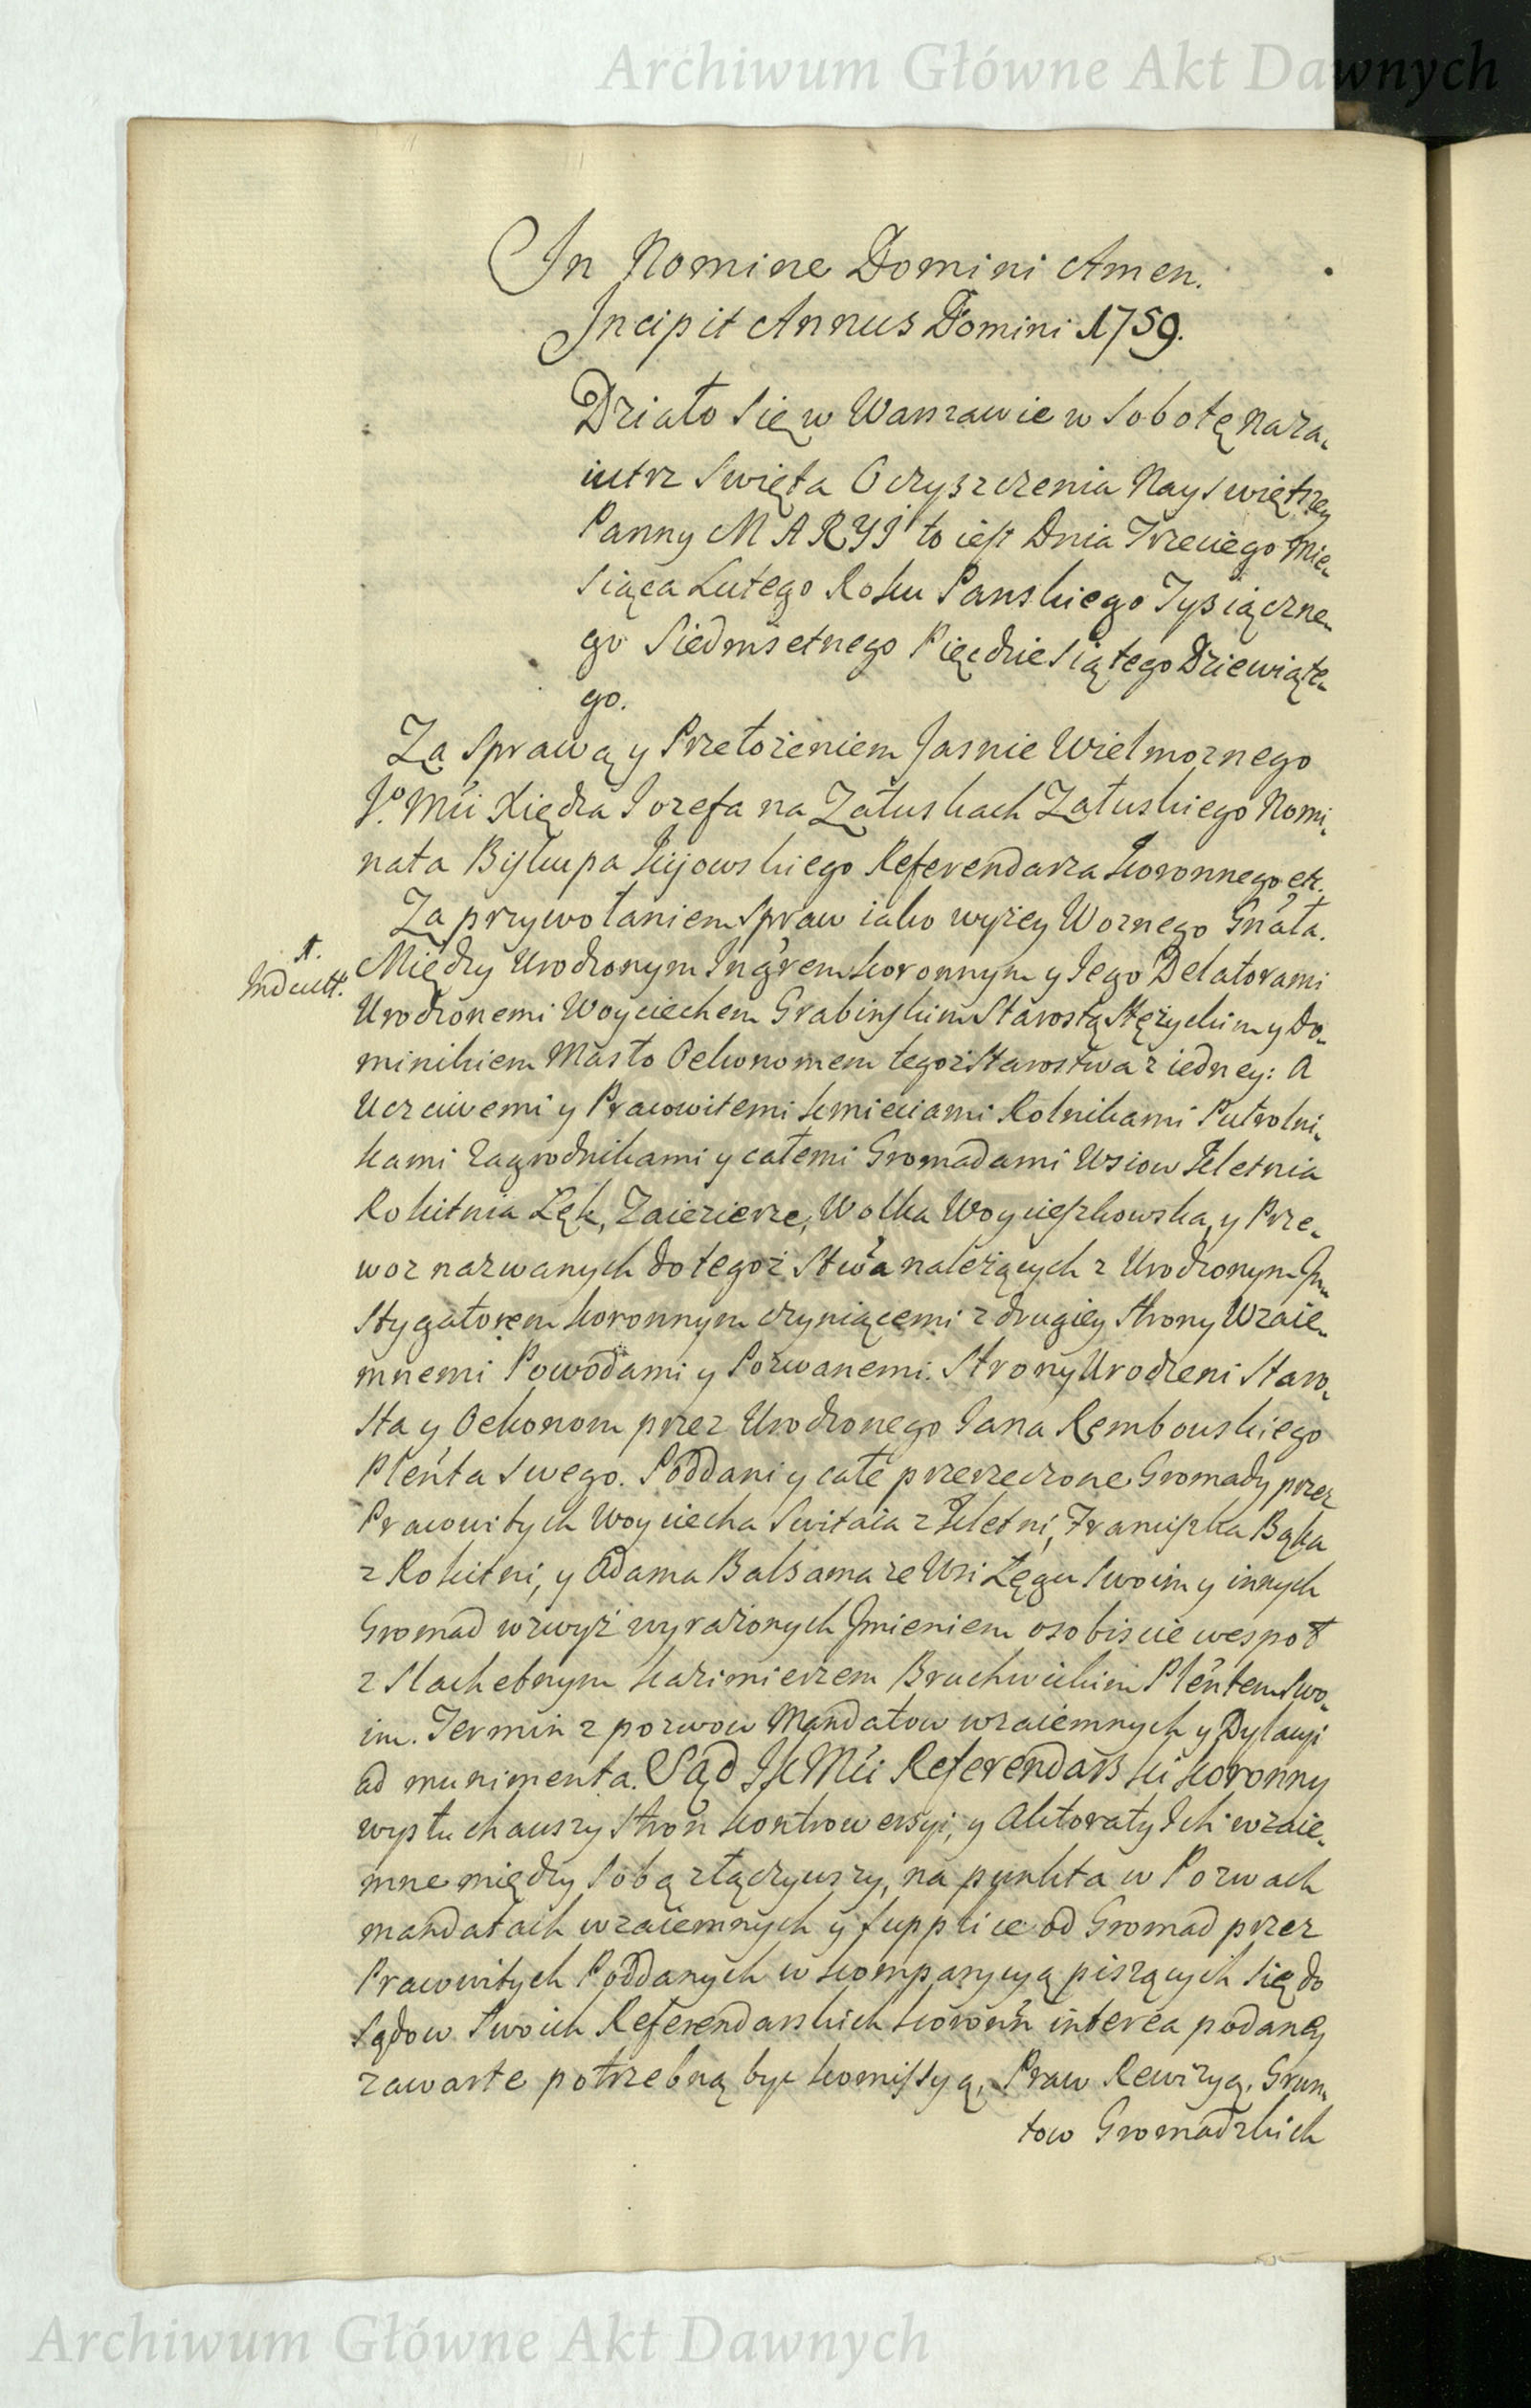 Archiwum Główne Akt Dawnych
In Nomine Domini Amen.
Incipit Annus Domini 1759.
Działo się w Warszawie w Sobotę naza-
iutrz Swięta Oczyszczenia Nayswiętszey
Panny MARYI to iest Dnia Trzeciego Mie-
siąca Lutego Roku Panskiego Tysiączne-
go Siedmsetnego Pięcdziesiątego Dziewiąte-
go.
Za Sprawą y Przełożeniem Jasnie Wielmoznego
Jº Mci Xiędza Iozefa na Załuskach Załuskiego Nomi-
nata Biskupa Kijowskiego Referendarza Koronnego etc.
Za przywołaniem Spraw iako wyżey Woznego Gnała.
1.
Indult.
Między Urodzonym Ingrem Koronnym y Iego Delatorami
Urodzonemi Woyciechem Grabinskim Starostą Stężyckim y Do-
minikiem Masło Oekonomem tegoż Starostwa z iedney: A
Uczciwemi y Pracowitemi Kmieciami Rolnikami Pułrolni-
kami Zagrodnikami y całemi Gromadami Wsiow Kletnia
Rokitnia Łęk, Zaiezierze, Wolka Woycieszkowska, y Prze-
woz nazwanych do tegoż Stwa należących z Urodzonym In-
stygatorem Koronnym czyniącemi z drugiey Strony Wzaie-
mnemi Powodami y Pozwanemi. Strony Urodzeni Staro-
sta y Oekonom przez Urodzonego Iana Rembowskiego
Plenta Swego. Poddani y całe przerzeczone Gromady przez
Pracowitych Woyciecha Switaia z Kletni, Franciszka Bąka
z Rokitni, y Adama Balsama ze Wsi Łęgu Swoim y innych
Gromad wzwyż wyrażonych Imieniem osobiscie wespoł
z Slachetnym Kazimierzem Bruchwickim Plentem Swo-
im. Termin z pozwow Mandatow wzaiemnych y Dylacyi
ad munimenta. Sąd JK Mci Referendarski Koronny
wysłuchawszy Stron Kontrowersyi, y Aktoraty Ich wzaie-
mne między Sobą złączywszy, na punkta w Pozwach
mandatach wzaiemnych y supplice od Gromad przez
Pracowitych Poddanych w Komparycyą piszących się do
Sądow Swoich Referendarskich Koronn interea podaney
zawarte potrzebną byc Komissyą, Praw Rewizyą, Grun-
tow Gromadzkich
Archiwum Główne Akt Dawnych